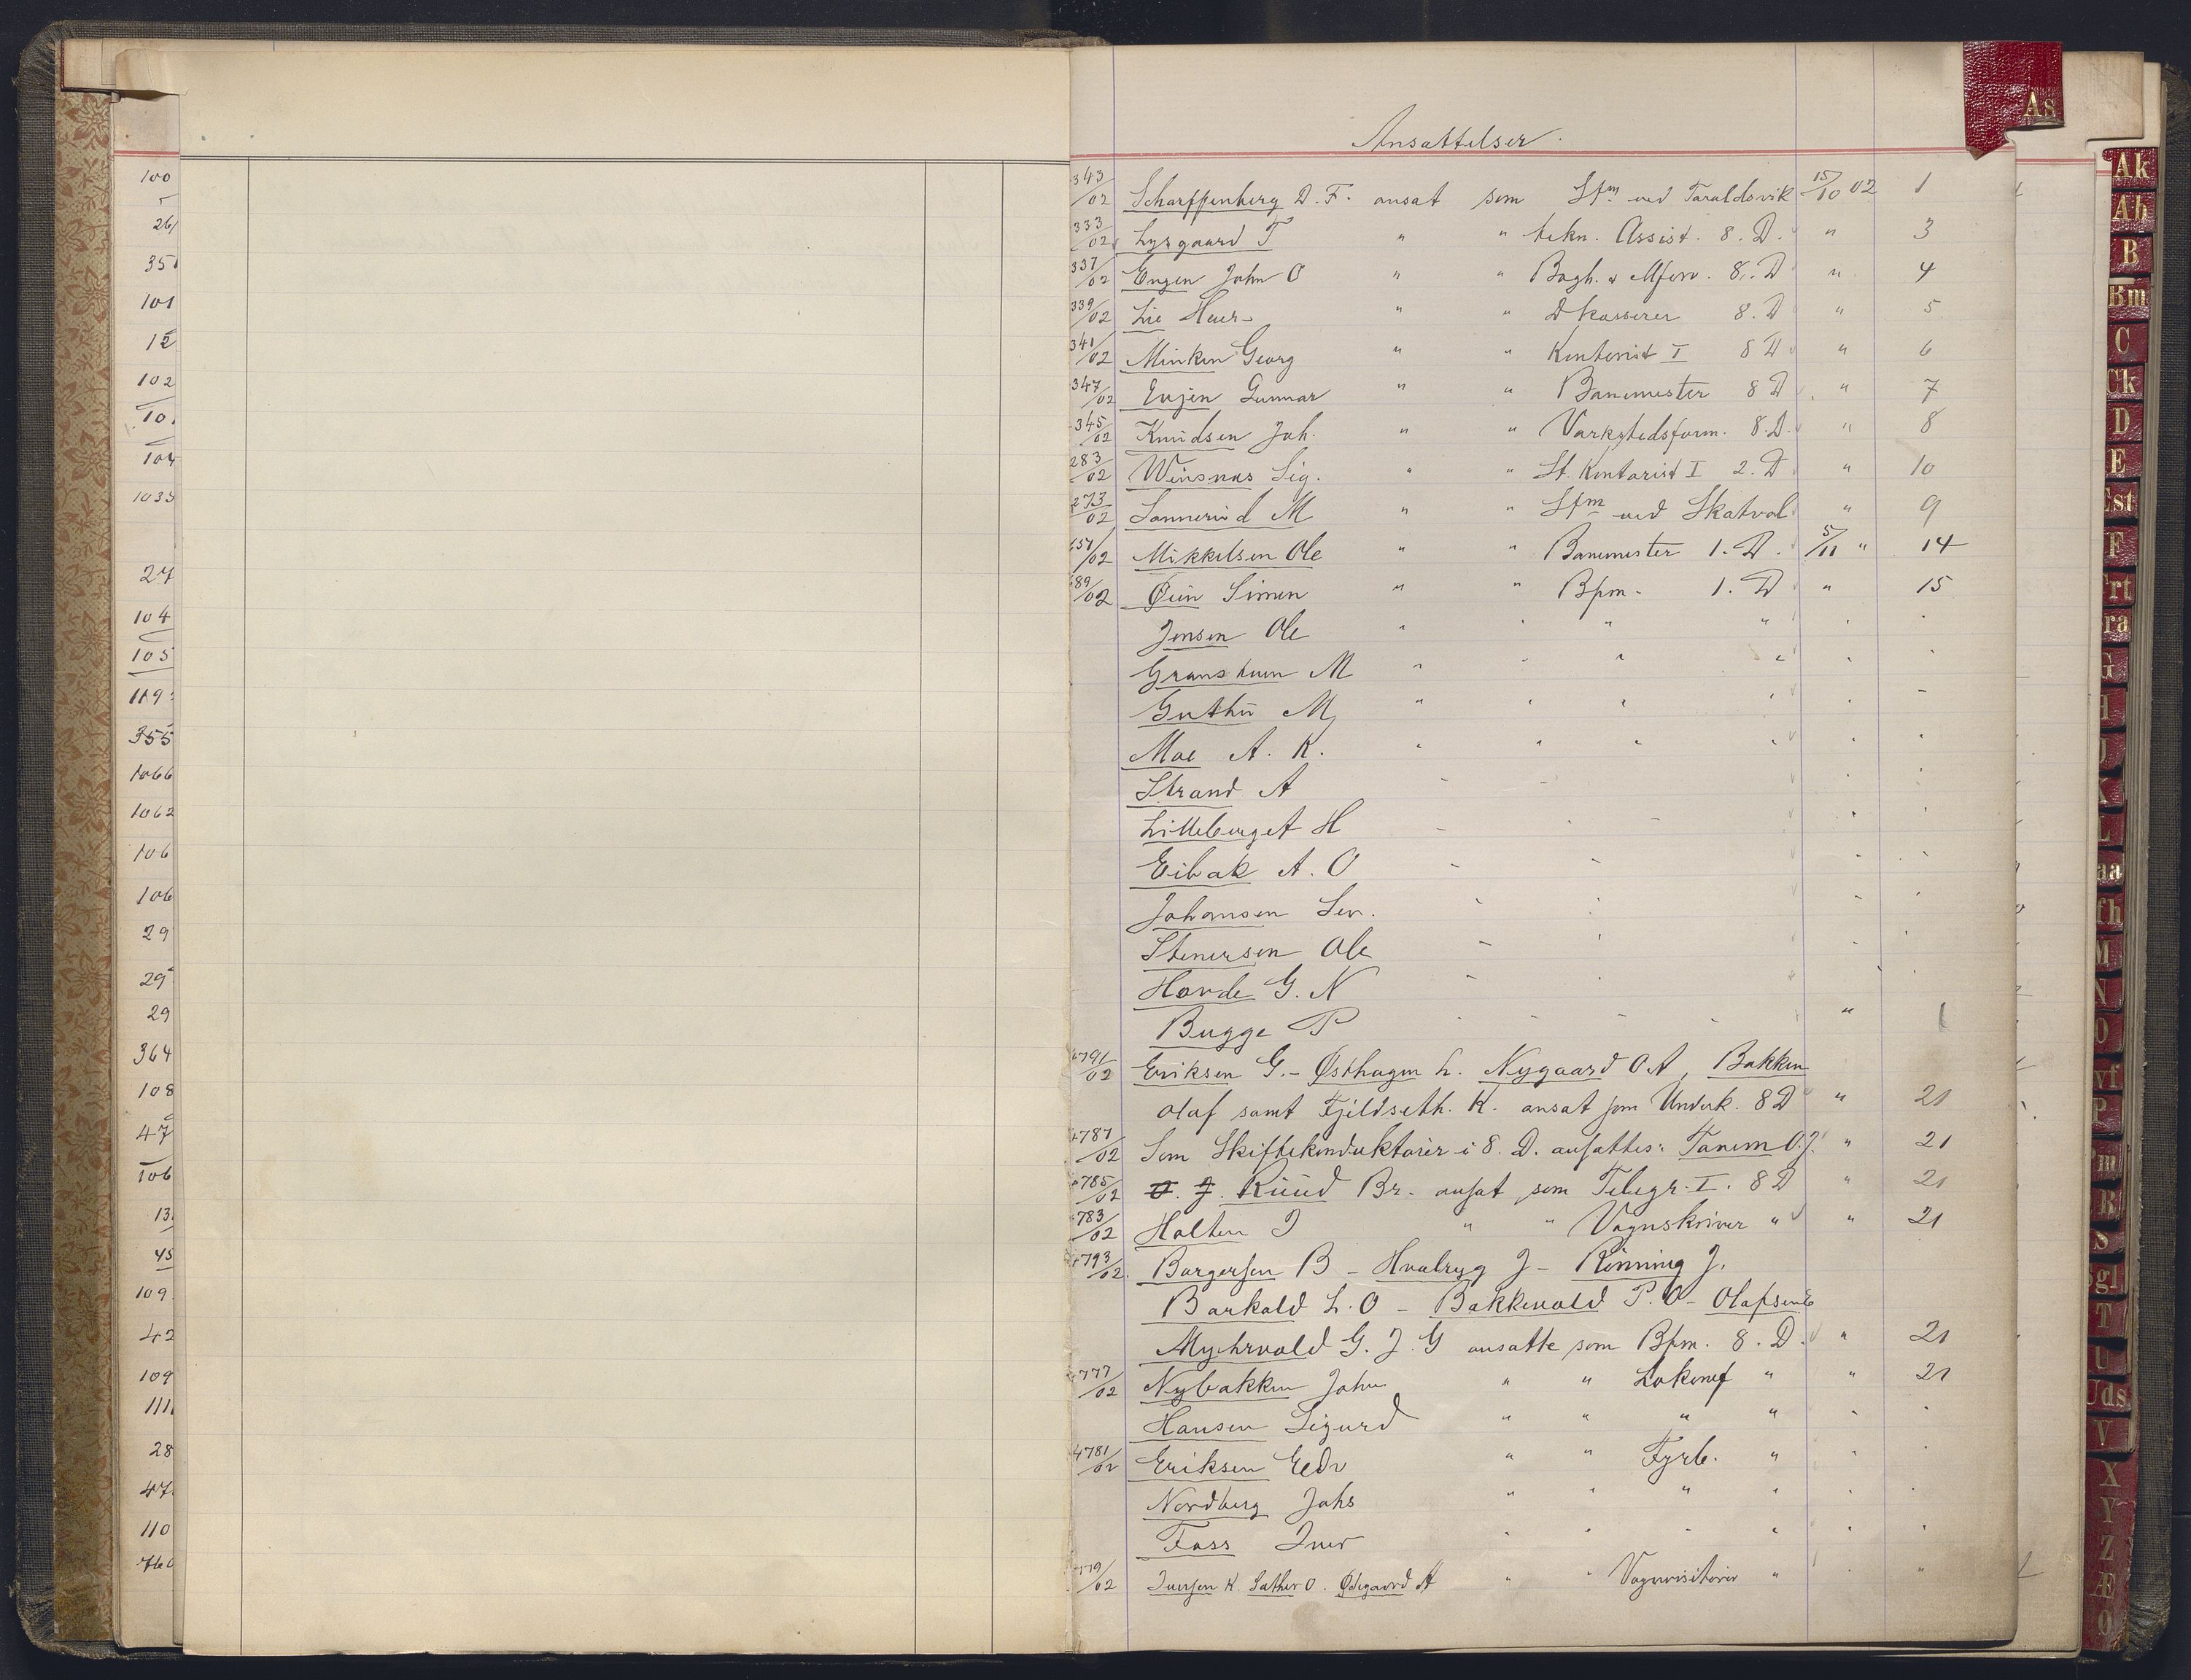 Ansættelser.
343/02 Scharffenberg D. F. ansat som Stm ved Taraldsvik 15/10 02 1
333/02 Lysgaard T " " tekn. Assist. 8. D. " 3
337/02 Engen John O " " Bogh. & Mforv. 8. D " 4
339/02 Lie " " Dkasserer 8. D " 5
341/02 Minken Georg " " Kontorist I 8 D " 6
347/02 Evjen Gunnar " " Banemester 8 D " 7
345/02 Knudsen Joh. " " Værkstedsform. 8. D. " 8
283/02 Winsnæs Sig. " " St. Kontorist I 2. D " 10
273/02 Sannerud M " " Stm ved Skatval " 9
Mikkelsen Ole " " Banemester 1. D. 5/11 " 14
Øien Simen " " Bpm. 1. D " 15
Jensen Ole " " " " " "
Granstuen M " " " " " "
Guthü M " " " " " "
Moe A. K. " " " " " "
Strand A
Lilleberget H
Eibak A. O
Johansen Sev.
Stenersen Ole
Hovde G. N
Bugge P "
4791/02 Eriksen G. - Østhagen L. Nygaard O A, Bakken
Olaf samt Fjeldseth. K. ansat som Underk. 8 D " 21
4787/02 Som Skiftekonduktører i 8. D. ansattes: Tanem O. J. " 21
4785/02 O. J. Ruud Br. ansat som Telegr. I. 8 D " 21
4783/02 Holten J " " Vognskriver " " 21
4793/02 Borgersen B - Hvalryg J - Rønning J.
Barkald L. O - Bakkevold P. O - Olafsen E
Myhrvold G. J. G ansatte som Bpm. 8. D. " 21
4777/02 Nybakken John " " Lokomf " " 21
Hansen Sigurd " " " " " "
4781/02 Eriksen Edv " " Fyrb. " " "
Nordberg Johs " " " " " "
Foss Iver " " " " " "
4779/02 Iversen K. Sæther O. Ødegaard A " " Vognvisitører " " "
As
Ak
Ab
B
Bm
C
Ck
D
E
Est
F
G
H
J
K
L
M
N
O
P
R
S
T
U
Uds
V
X
Y
Z
Æ
Ø
100
26
351
101
12
102
10
104
1035
27
104
105
119
355
1066
1062
106
106
29
29
29
364
108
47
106
13
45
109
42
109
111
28
47
110
760